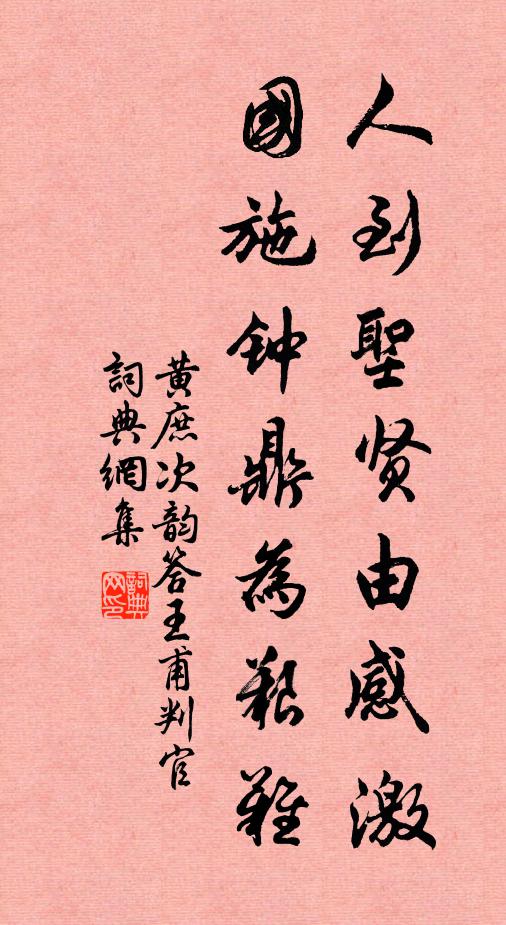 人到聖贤由感激
國施钟鼎為艱難
黃庶次韵答王甫判官
詞典網集
詞典网印